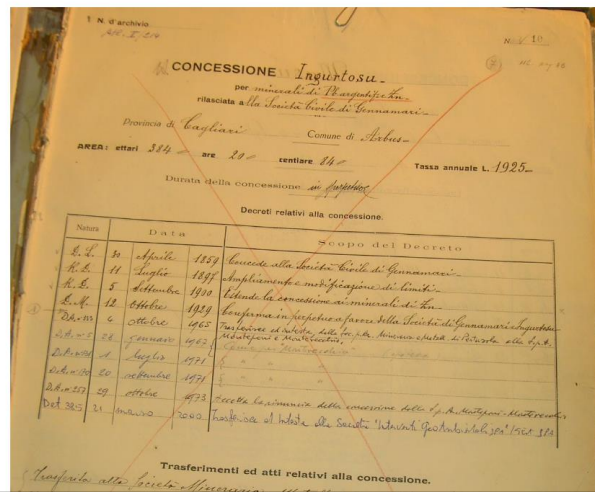 1 N. d'archivio
N. 10
CONCESSIONE Ingurtosu
per minerali di Pb argentif. e Zn.
rilasciata alla Società Civile di Gennamari
Provincia di Cagliari Comune di Arbus
AREA: ettari 384 are 20 centiare 84 Tassa annuale L. 1925
Durata della concessione in perpetuo
Decreti relativi alla concessione.
Natura Data Scopo del Decreto
30 Aprile 1859 Concede alla Società Civile di Gennamari
11 Luglio 1897 Ampliamento e modificazione di limiti
5 Settembre 1900 Estende la concessione ai minerali di Zn
12 Ottobre 1929 Conferma in perpetuo a favore della Società di Gennamari e Ingurtosu
4 ottobre 1965 Trasferisce ed intesta della Soc. alla S.p.A.
gennaio 1967 Monteponi e Montevecchio
luglio 1971 " "
20 settembre 1971 " "
29 ottobre 1973 Accolta la rinunzia della concessione della S.p.A. Monteponi-Montevecchio
Det 385 21 marzo 2000 Trasferisce ed intesta alla Società "Interventi GeoAmbientali SPA"
Trasferimenti ed atti relativi alla concessione.
Trasferita alla Società Mineraria